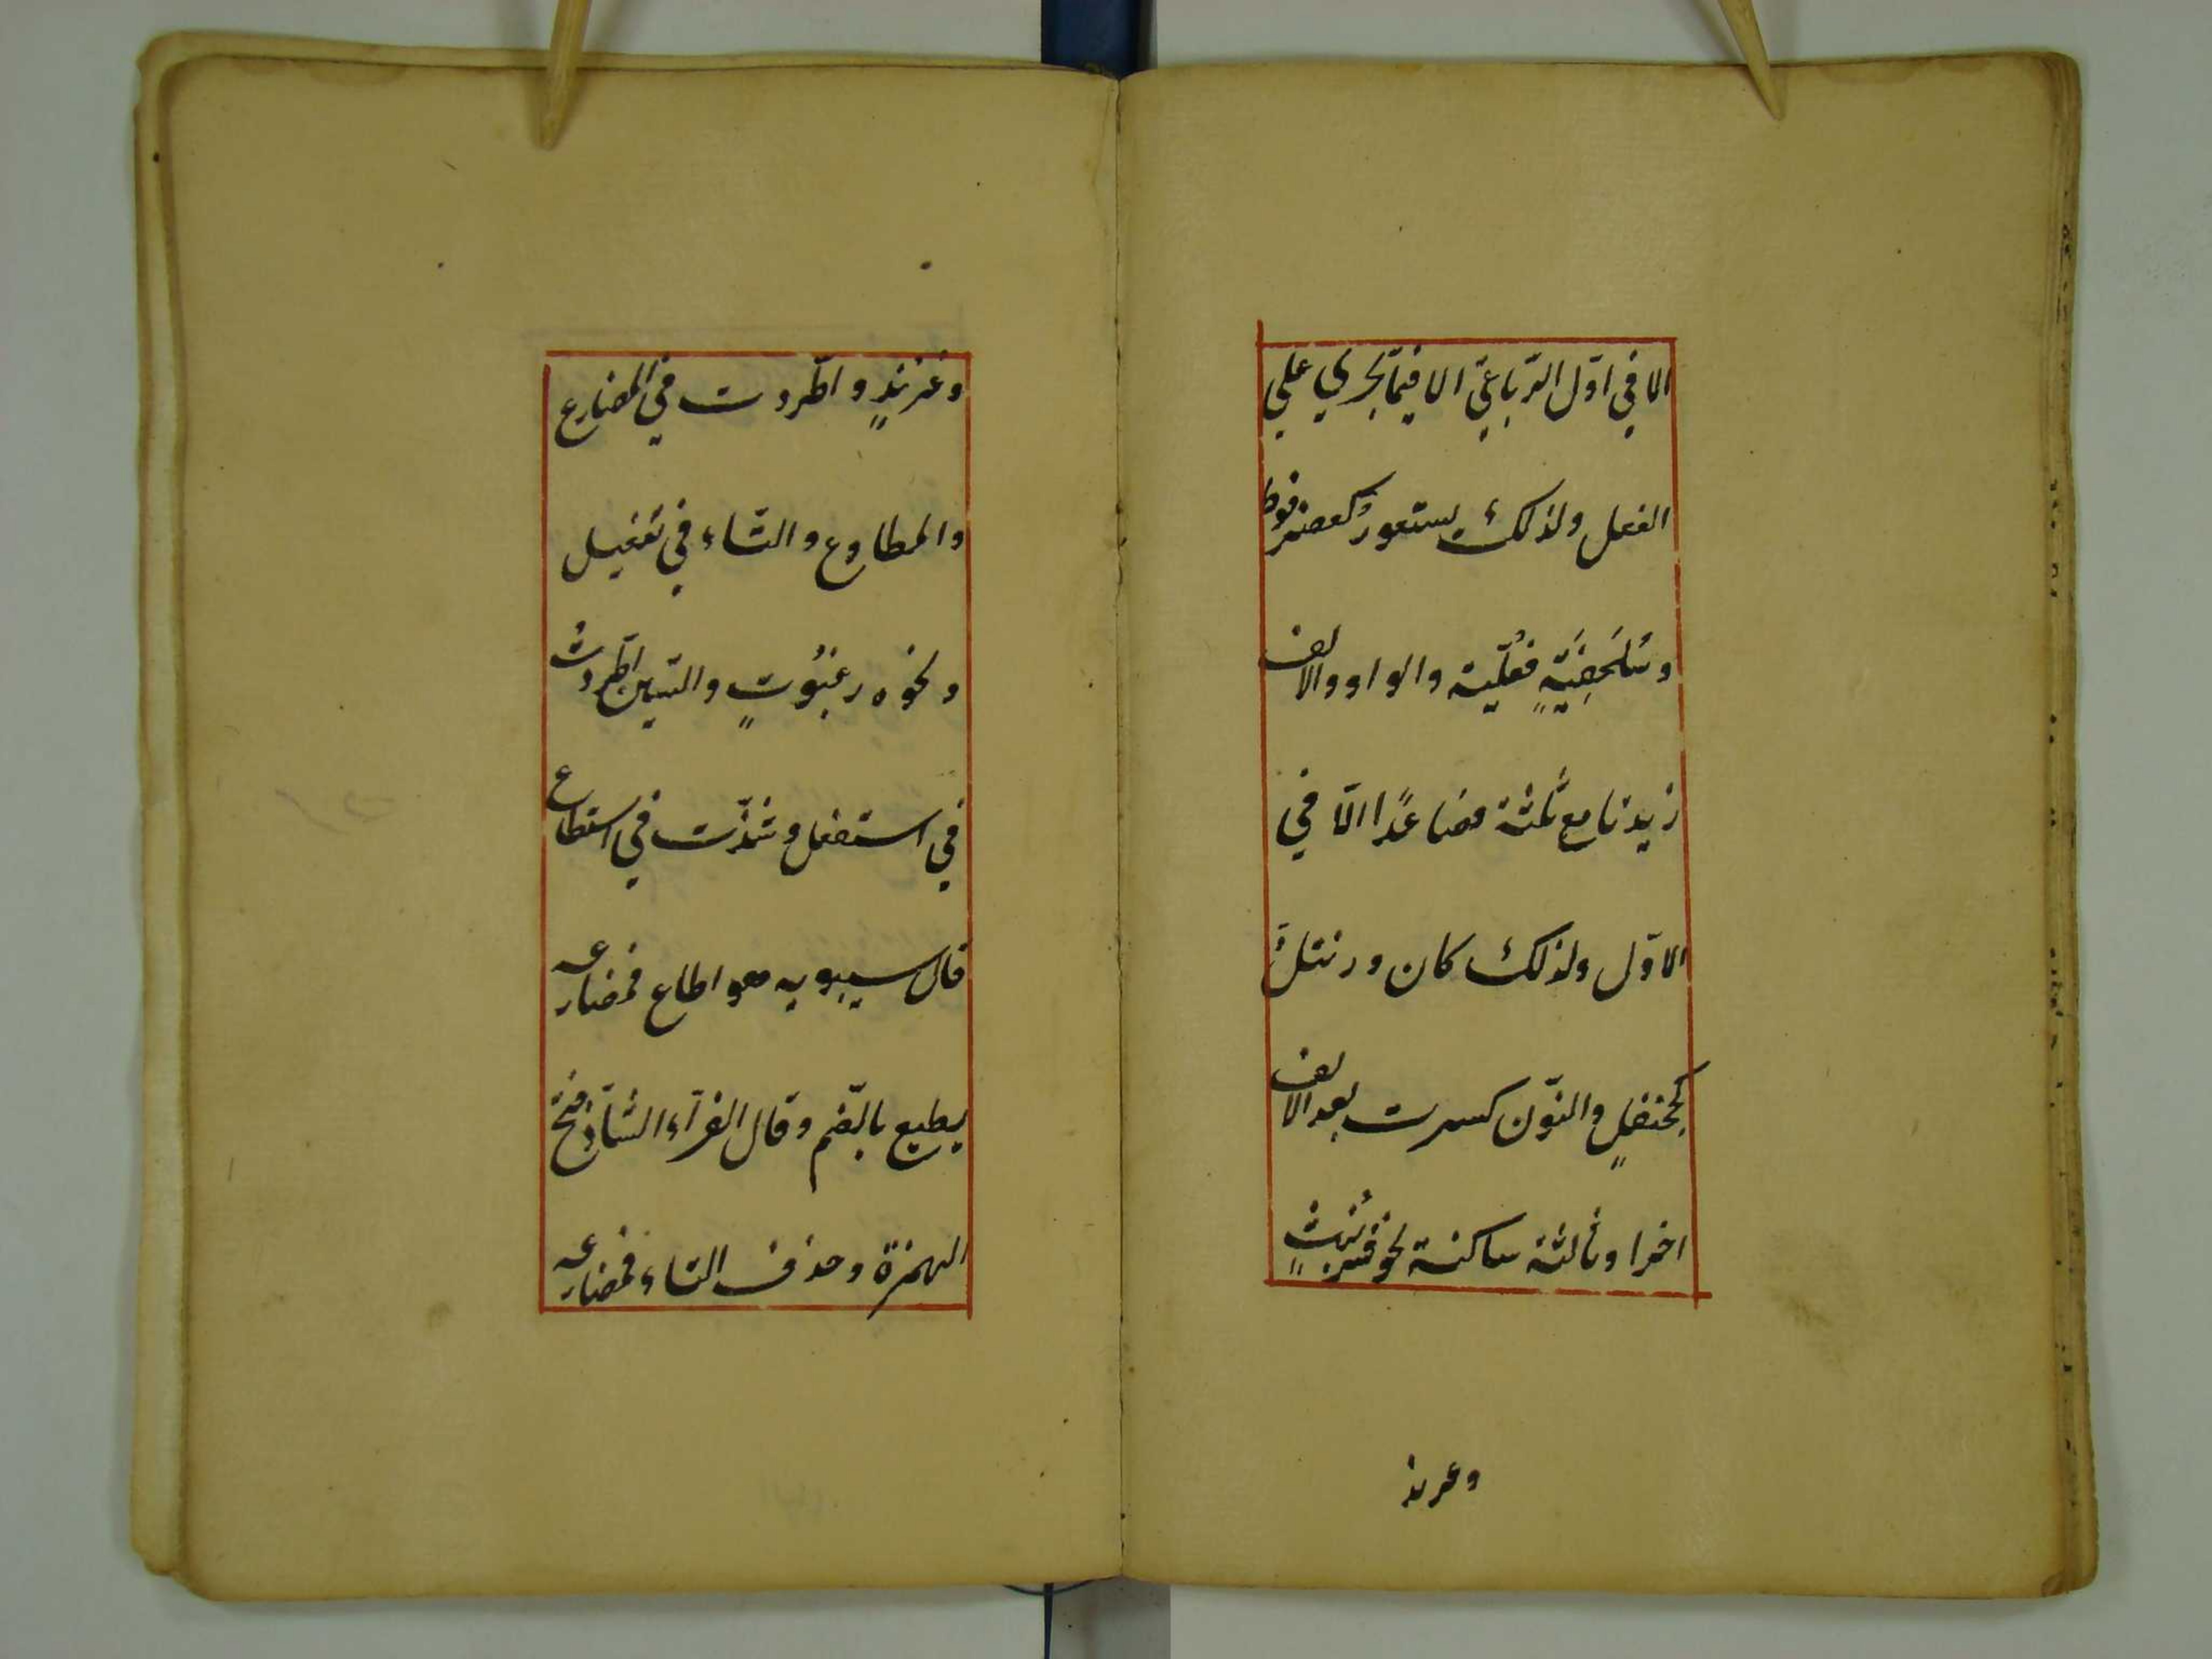 الا في اوّل الرّباعيّ الا فيما يجري علي
الفعل ولذلك يستعور كعضرفوط
وسُلَحفِيَةٍ فعلّية والواو والالف
زيدتا مع ثلثة فصاعدًا الّا في
الاوّل ولذلك كان ورنتلٌ
كجحنفلٍ والنّون كسرت بعد الالف
اخرا وثالثة ساكنة نحو شرنبثٍ
وعرند
وعرندٍ واطّردت في المضارع
والمطاوع والتّاء في تفعيل
ونحوه رغبُوتٍ والسّين اطّردتْ
في استفعل وشذّت في اسطاع
قال سيبويه هو اطاع فمضارعه
يطيع بالضّم وقال الفرّاء الشّاذ فتح
الهمزة وحذف التاء فمضارعه